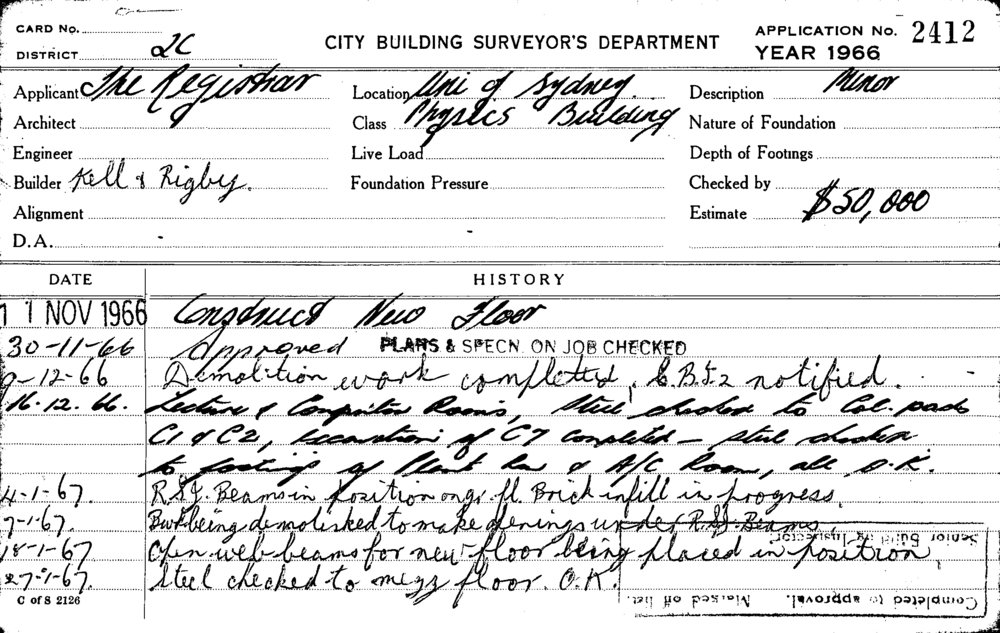 CARD No.
DISTRICT 2C
CITY BUILDING SURVEYOR'S DEPARTMENT
APPLICATION No. 2412
YEAR 1966
Applicant The Registrar
Location Uni of Sydney
Description Minor
Architect
Class Physics Building
Nature of Foundation
Engineer
Live Load
Depth of Footings
Builder Kell & Rigby.
Foundation Pressure
Checked by
Alignment
Estimate $50,000
D.A. -
DATE HISTORY
1 1 NOV 1966 Construct New Floor
30-11-66 Approved PLANS & SPECN. ON JOB CHECKED
9-12-66 Demolition work completed, notified.
16.12.66. Lecture & Computer Rooms, steel checked to Col. pads
C1 & C2, excavation of C7 completed - steel checked
to footings of Plant & A/C Room, all O.K.
4-1-67. R.S.J. Beams in position on gr. fl. Brick infill in progress.
7-1-67. Bwk being demolished to make openings under R.S.J. Beams.
18-1-67 Open web beams for new floor being placed in position
27-1-67. Steel checked to mezz floor. O.K.
C of S 2126
Completed to approval. Marked off list.
Senior Building Inspector.